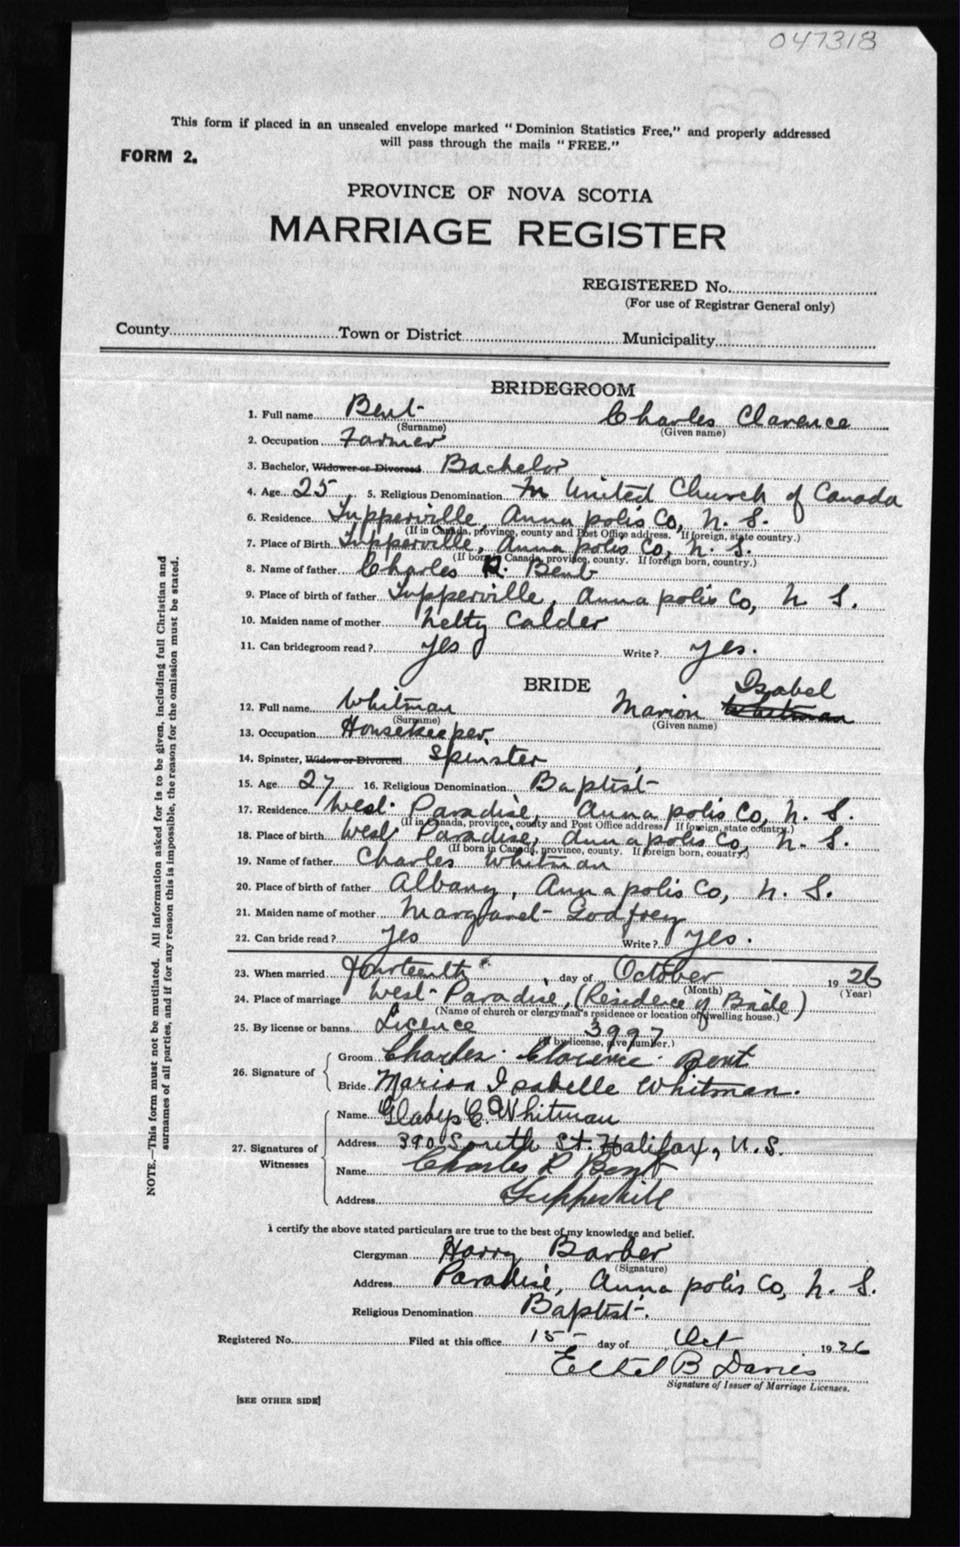 047318
This form if placed in an unsealed envelope marked "Dominion Statistics Free," and properly addressed
will pass through the mails "FREE."
FORM 2.
PROVINCE OF NOVA SCOTIA
MARRIAGE REGISTER
REGISTERED No.
(For use of Registrar General only)
County Town or District Municipality
BRIDEGROOM
1. Full name Bent Charles Clarence
(Surname) (Given name)
2. Occupation Farmer
3. Bachelor, Widower or Divorced Bachelor
4. Age 25. 5. Religious Denomination United Church of Canada
6. Residence Tupperville, Annapolis Co, N. S.
(If in Canada, province, county and Post Office address. If foreign, state country.)
7. Place of Birth Tupperville, Annapolis Co, N. S.
(If born in Canada, province, county. If foreign born, country.)
8. Name of father Charles R. Bent
9. Place of birth of father Tupperville, Annapolis Co, N S.
10. Maiden name of mother Netty Calder
11. Can bridegroom read? yes Write? yes.
BRIDE
Isabel
12. Full name Whitman Marion Whitman
(Surname) (Given name)
13. Occupation Housekeeper
14. Spinster, Widow or Divorced Spinster
15. Age 27 16. Religious Denomination Baptist
17. Residence West Paradise, Annapolis Co, N. S.
(If in Canada, province, county and Post Office address. If foreign, state country.)
18. Place of birth West Paradise, Annapolis Co, N. S.
(If born in Canada, province, county. If foreign born, country.)
19. Name of father Charles Whitman
20. Place of birth of father Albany, Annapolis Co, N. S.
21. Maiden name of mother Margaret Godfrey
22. Can bride read? Yes Write? yes.
23. When married fourteenth day of October 1926
(Month) (Year)
24. Place of marriage West Paradise, (Residence of Bride)
(Name of church or clergyman's residence or location of dwelling house.)
25. By license or banns Licence 3997
(If by license, give number.)
26. Signature of
Groom Charles Clarence Bent
Bride Marion Isabelle Whitman.
27. Signatures of Witnesses
Name Gladys E. Whitman
Address 390 South St. Halifax, N. S.
Name Charles R Bent
Address Tupperville
I certify the above stated particulars are true to the best of my knowledge and belief.
Clergyman Harry Barber
(Signature)
Address Paradise, Annapolis Co, N. S.
Religious Denomination Baptist.
Registered No. Filed at this office 15 day of Oct 1926
Ethel B Davies
Signature of Issuer of Marriage Licenses.
[SEE OTHER SIDE]
NOTE.—This form must not be mutilated. All information asked for is to be given, including full Christian and
surnames of all parties, and if for any reason this is impossible, the reason for the omission must be stated.